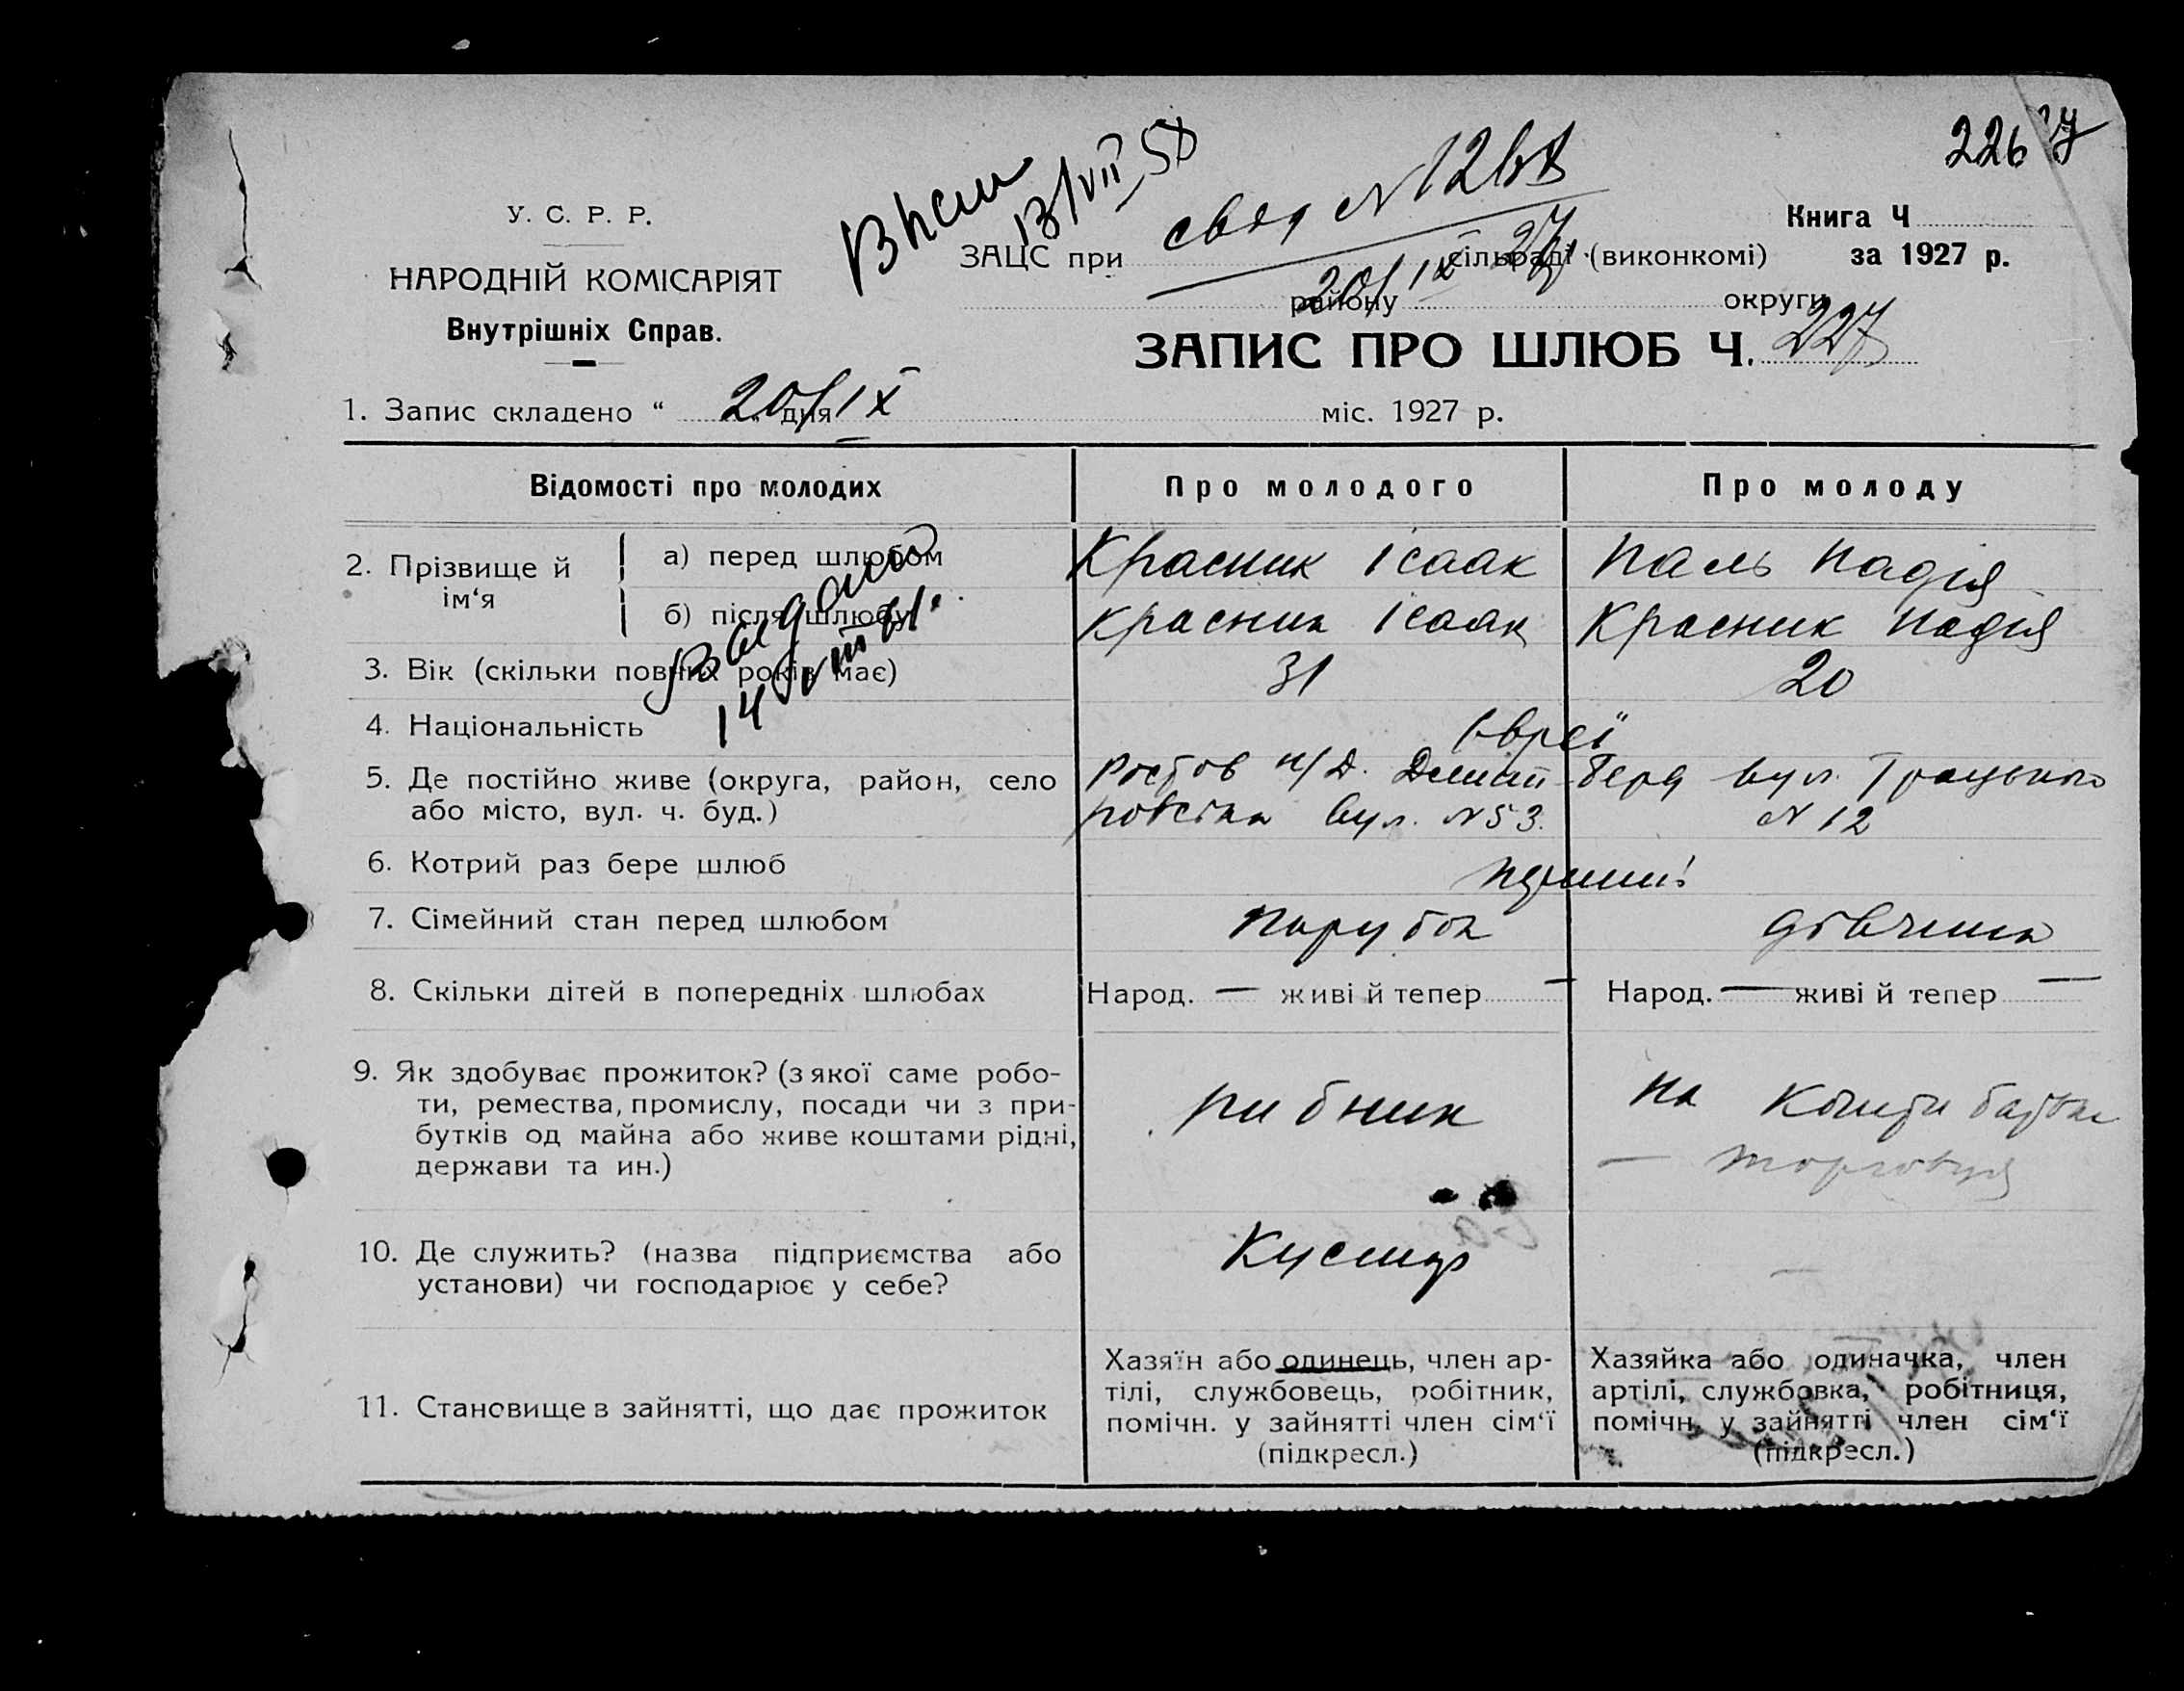 226
У. С. Р. Р.
НАРОДНІЙ КОМІСАРІЯТ
Внутрішніх Справ.
13/VII 58
ЗАЦС при сільраді (виконкомі)
Книга Ч
за 1927 р.
20/IX 27
району округи
ЗАПИС ПРО ШЛЮБ Ч. 227
1. Запис складено “ 20/IX „ дня міс. 1927 р.
Відомості про молодих Про молодого Про молоду
2. Прізвище й ім‘я
а) перед шлюбом Красник Ісаак Паль Надія
б) після шлюбу Красник Ісаак Красник Надія
3. Вік (скільки повних років має) 31 20
4. Національність Євреї
5. Де постійно живе (округа, район, село Ростов н/Д. Дмит- Берд вул. Троцького
або місто, вул. ч. буд.) ровська вул. N 53. N 12
6. Котрий раз бере шлюб перший
7. Сімейний стан перед шлюбом парубок дівчина
8. Скільки дітей в попередніх шлюбах Народ. — живі й тепер — Народ. — живі й тепер —
9. Як здобуває прожиток? (з якої саме робо-
ти, ремества, промислу, посади чи з при- рибник на кошти батька
бутків од майна або живе коштами рідні, — торговця
держави та ин.)
10. Де служить? (назва підприємства або Кустар —
установи) чи господарює у себе?
11. Становище в зайнятті, що дає прожиток
Хазяїн або одинець, член ар-
тілі, службовець, робітник,
помічн. у зайнятті член сім‘ї
(підкресл.)
Хазяйка або одиначка, член
артілі, службовка, робітниця,
помічн. у зайнятті член сім‘ї
(підкресл.)